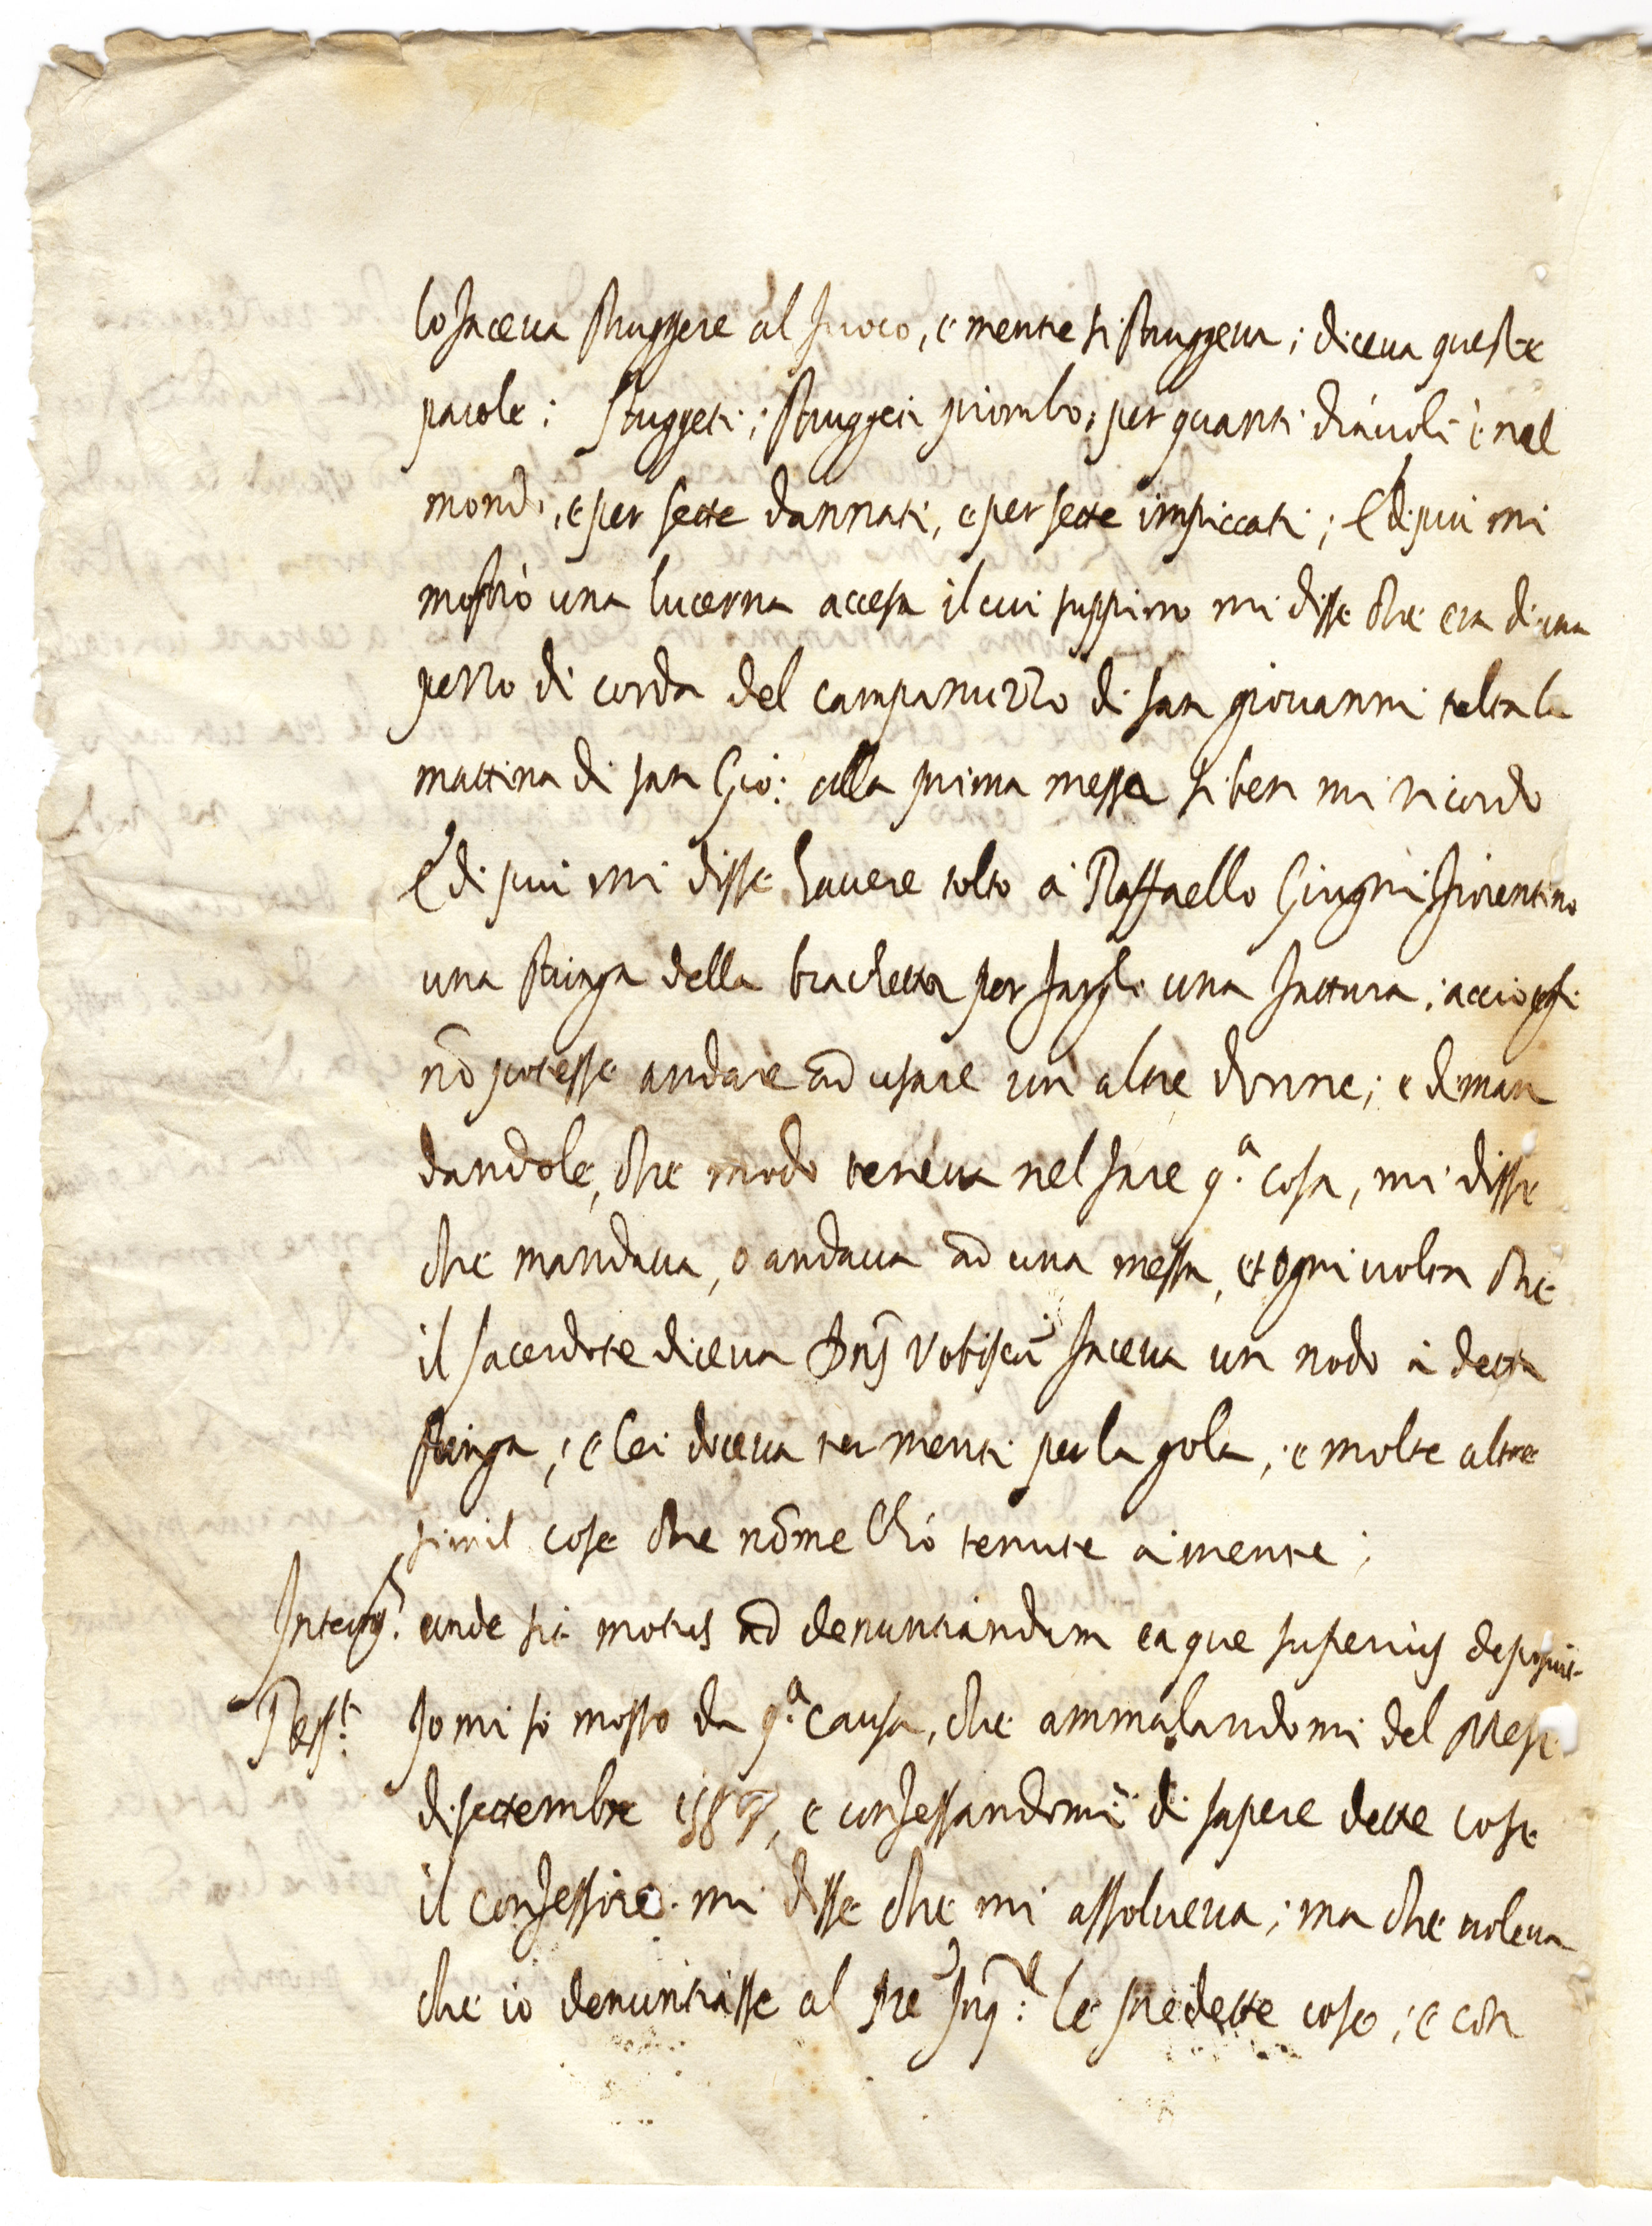 lo faceva struggere al fuoco, e mentre si struggeva; diceva queste
parole: struggeti; struggeti piombo; per quanti diavoli è nel
mondo, e per sette dannati, e per sette impiccati; E di piu mi
mostrò una lucerna accesa il cui suppino mi disse che era di una
pezzo di corda del campanuzzo di san giovanni tolta la
mattina di san Gio: alla prima messa si ben mi ricordo
E di piu mi disse havere tolto à Raffaello Giugni fiorentino
una stringa della brachetta per fargli una fattura; acciò egli
nõ potesse andare ad usare cun altre donne; e diman
dandole, che modo teneva nel fare q.ª cosa, mi disse
che mandava, o andava ad una messa, et ogni volta che
il sacerdote diceva Dñs vobiscũ faceva un nodo à detta
stringa; e lei diceva tu menti per la gola; e molte altre
simil cose che nõ me l'hò tenute à mente;
Interrog.s unde sit motus ad denuntiandum ea que superius deposuit
Resp.t Jo mi sõ mosso da q.ª causa, che ammalandomi del mese
di settembre 158, e confessandomi di sapere dette cose
il confessore mi disse che mi assolveva; ma che voleva
che io denuntiasse al Pre Inq.re le predette cose; e con